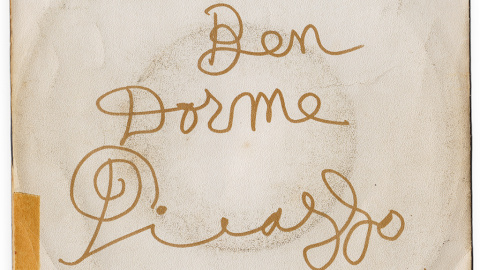 Ben
Dorme
Picasso